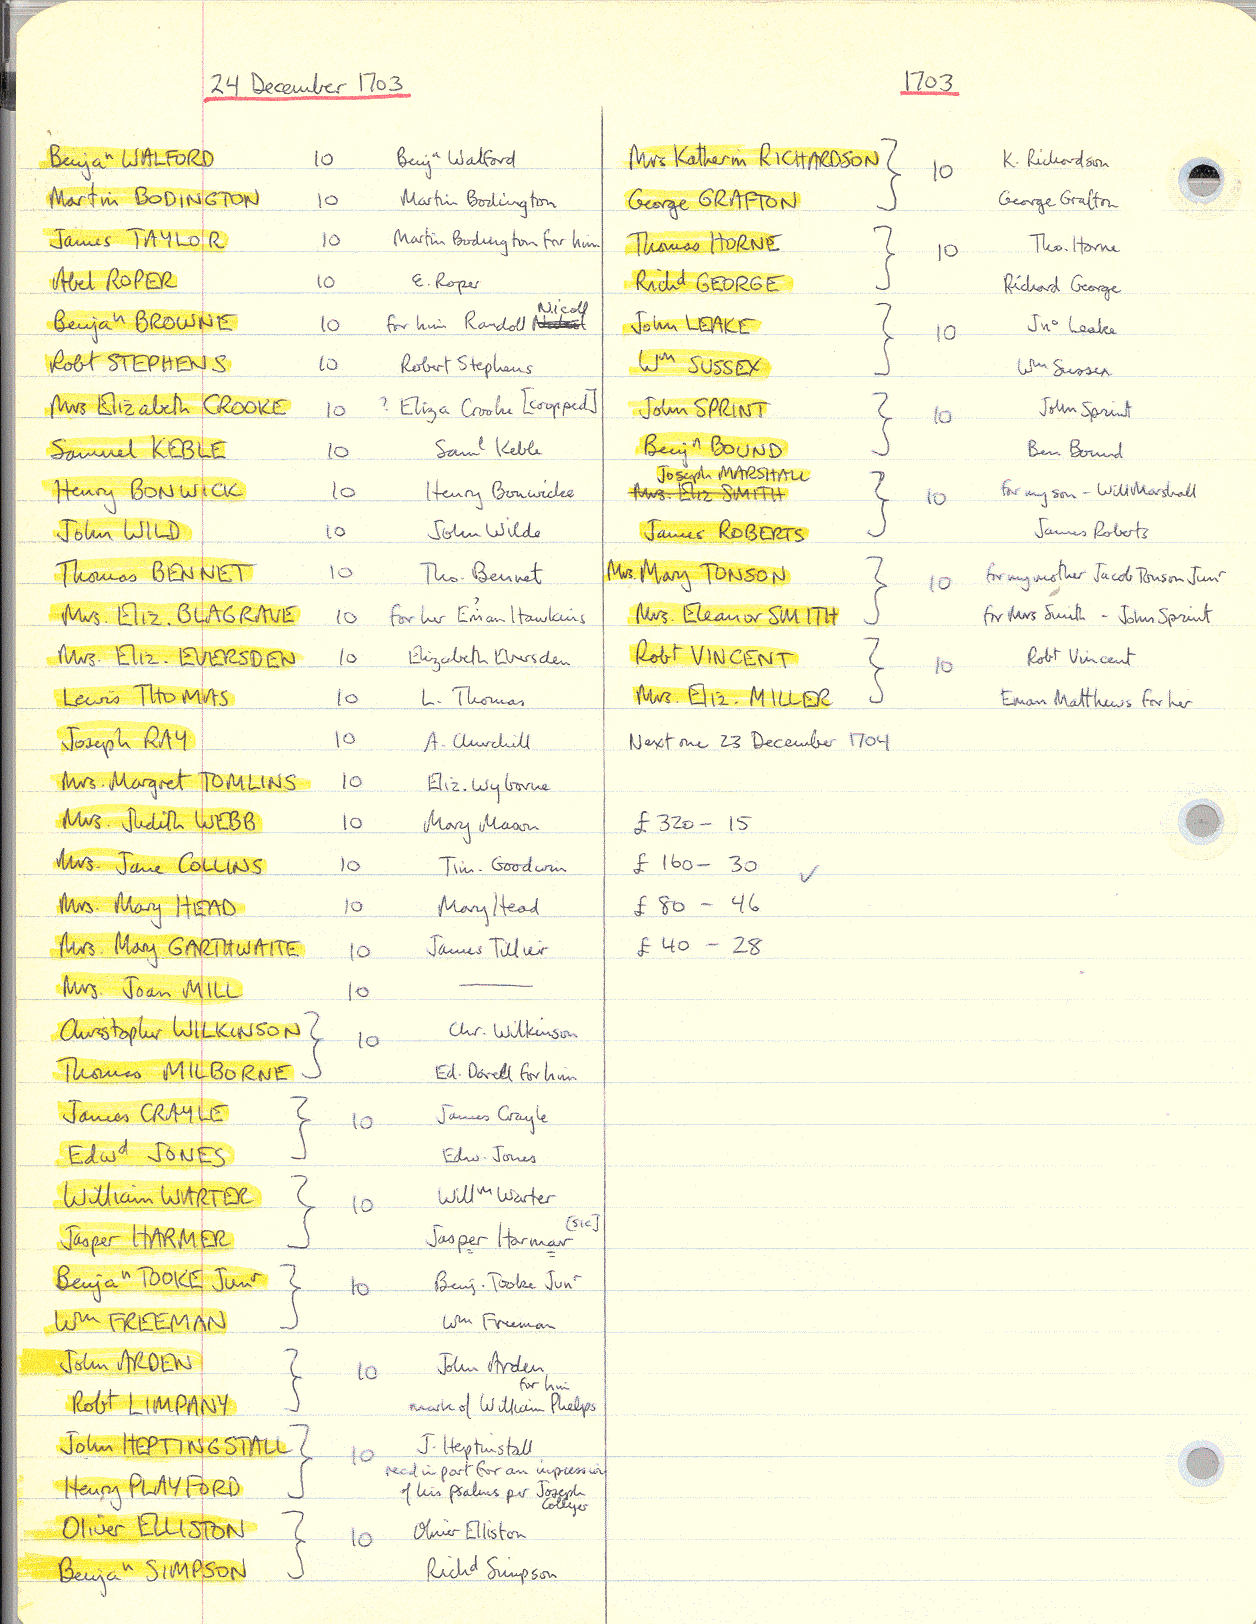 24 December 1703
Benja^n WALFORD 10 Benj^n Walford
Martin BODINGTON 10 Martin Bodington
James TAYLOR 10 Martin Bodington for him
Abel ROPER 10 E. Roper
Benja^n BROWNE 10 for him Randoll Nicoll
Robt STEPHENS 10 Robert Stephens
Mrs Elizabeth CROOKE 10 ? Eliza Crooke [cropped]
Samuel KEBLE 10 Sam^l Keble
Henry BONWICK 10 Henry Bonwicke
John WILD 10 John Wilde
Thomas BENNET 10 Tho. Bennet
Mrs. Eliz. BLAGRAVE 10 for her Eman ? Hawkins
Mrs. Eliz. EVERSDEN 10 Elizabeth Eversden
Lewis THOMAS 10 L. Thomas
Joseph RAY 10 A. Churchill
Mrs. Margret TOMLINS 10 Eliz. Wyborne
Mrs. Judith WEBB 10 Mary Mason
Mrs. Jane COLLINS 10 Tim. Goodwin
Mrs. Mary HEAD 10 Mary Head
Mrs. Mary GARTHWAITE 10 James Tillier
Mrs. Joan MILL 10 ———
Christopher WILKINSON } 10 Chr. Wilkinson
Thomas MILBORNE Ed. Darell for him
James CRAYLE } 10 James Crayle
Edw^d JONES Edw. Jones
William WARTER } 10 Will^m Warter
Jasper HARMER Jasper Harmar [sic]
Benja^n TOOKE Jun^r } 10 Benj. Tooke Jun^r
W^m FREEMAN Wm Freeman
John ARDEN } 10 John Arden
for him
Robt LIMPANY mark of William Phelps
John HEPTINGSTALL } 10 J. Heptinstall
recd in part for an impression
Henry PLAYFORD of his psalms per Joseph
Collyer
Oliver ELLISTON } 10 Oliver Elliston
Benja^n SIMPSON Rich^d Simpson
1703
Mrs Katherin RICHARDSON } 10 K. Richardson
George GRAFTON George Grafton
Thomas HORNE } 10 Tho. Horne
Rich^d GEORGE Richard George
John LEAKE } 10 Jn^o Leake
W^m SUSSEX Wm Sussex
John SPRINT } 10 John Sprint
Benj^n BOUND Ben Bound
Joseph MARSHALL
Mrs. Eliz SMITH } 10 for my son - Will Marshall
James ROBERTS James Roberts
Mrs. Mary TONSON } 10 for my mother Jacob Tonson Jun^r
Mrs. Eleanor SMITH for Mrs Smith - John Sprint
Robt VINCENT } 10 Robt Vincent
Mrs. Eliz. MILLER Eman Matthews for her
Next one 23 December 1704
£ 320 - 15
£ 160 - 30 ✓
£ 80 - 46
£ 40 - 28